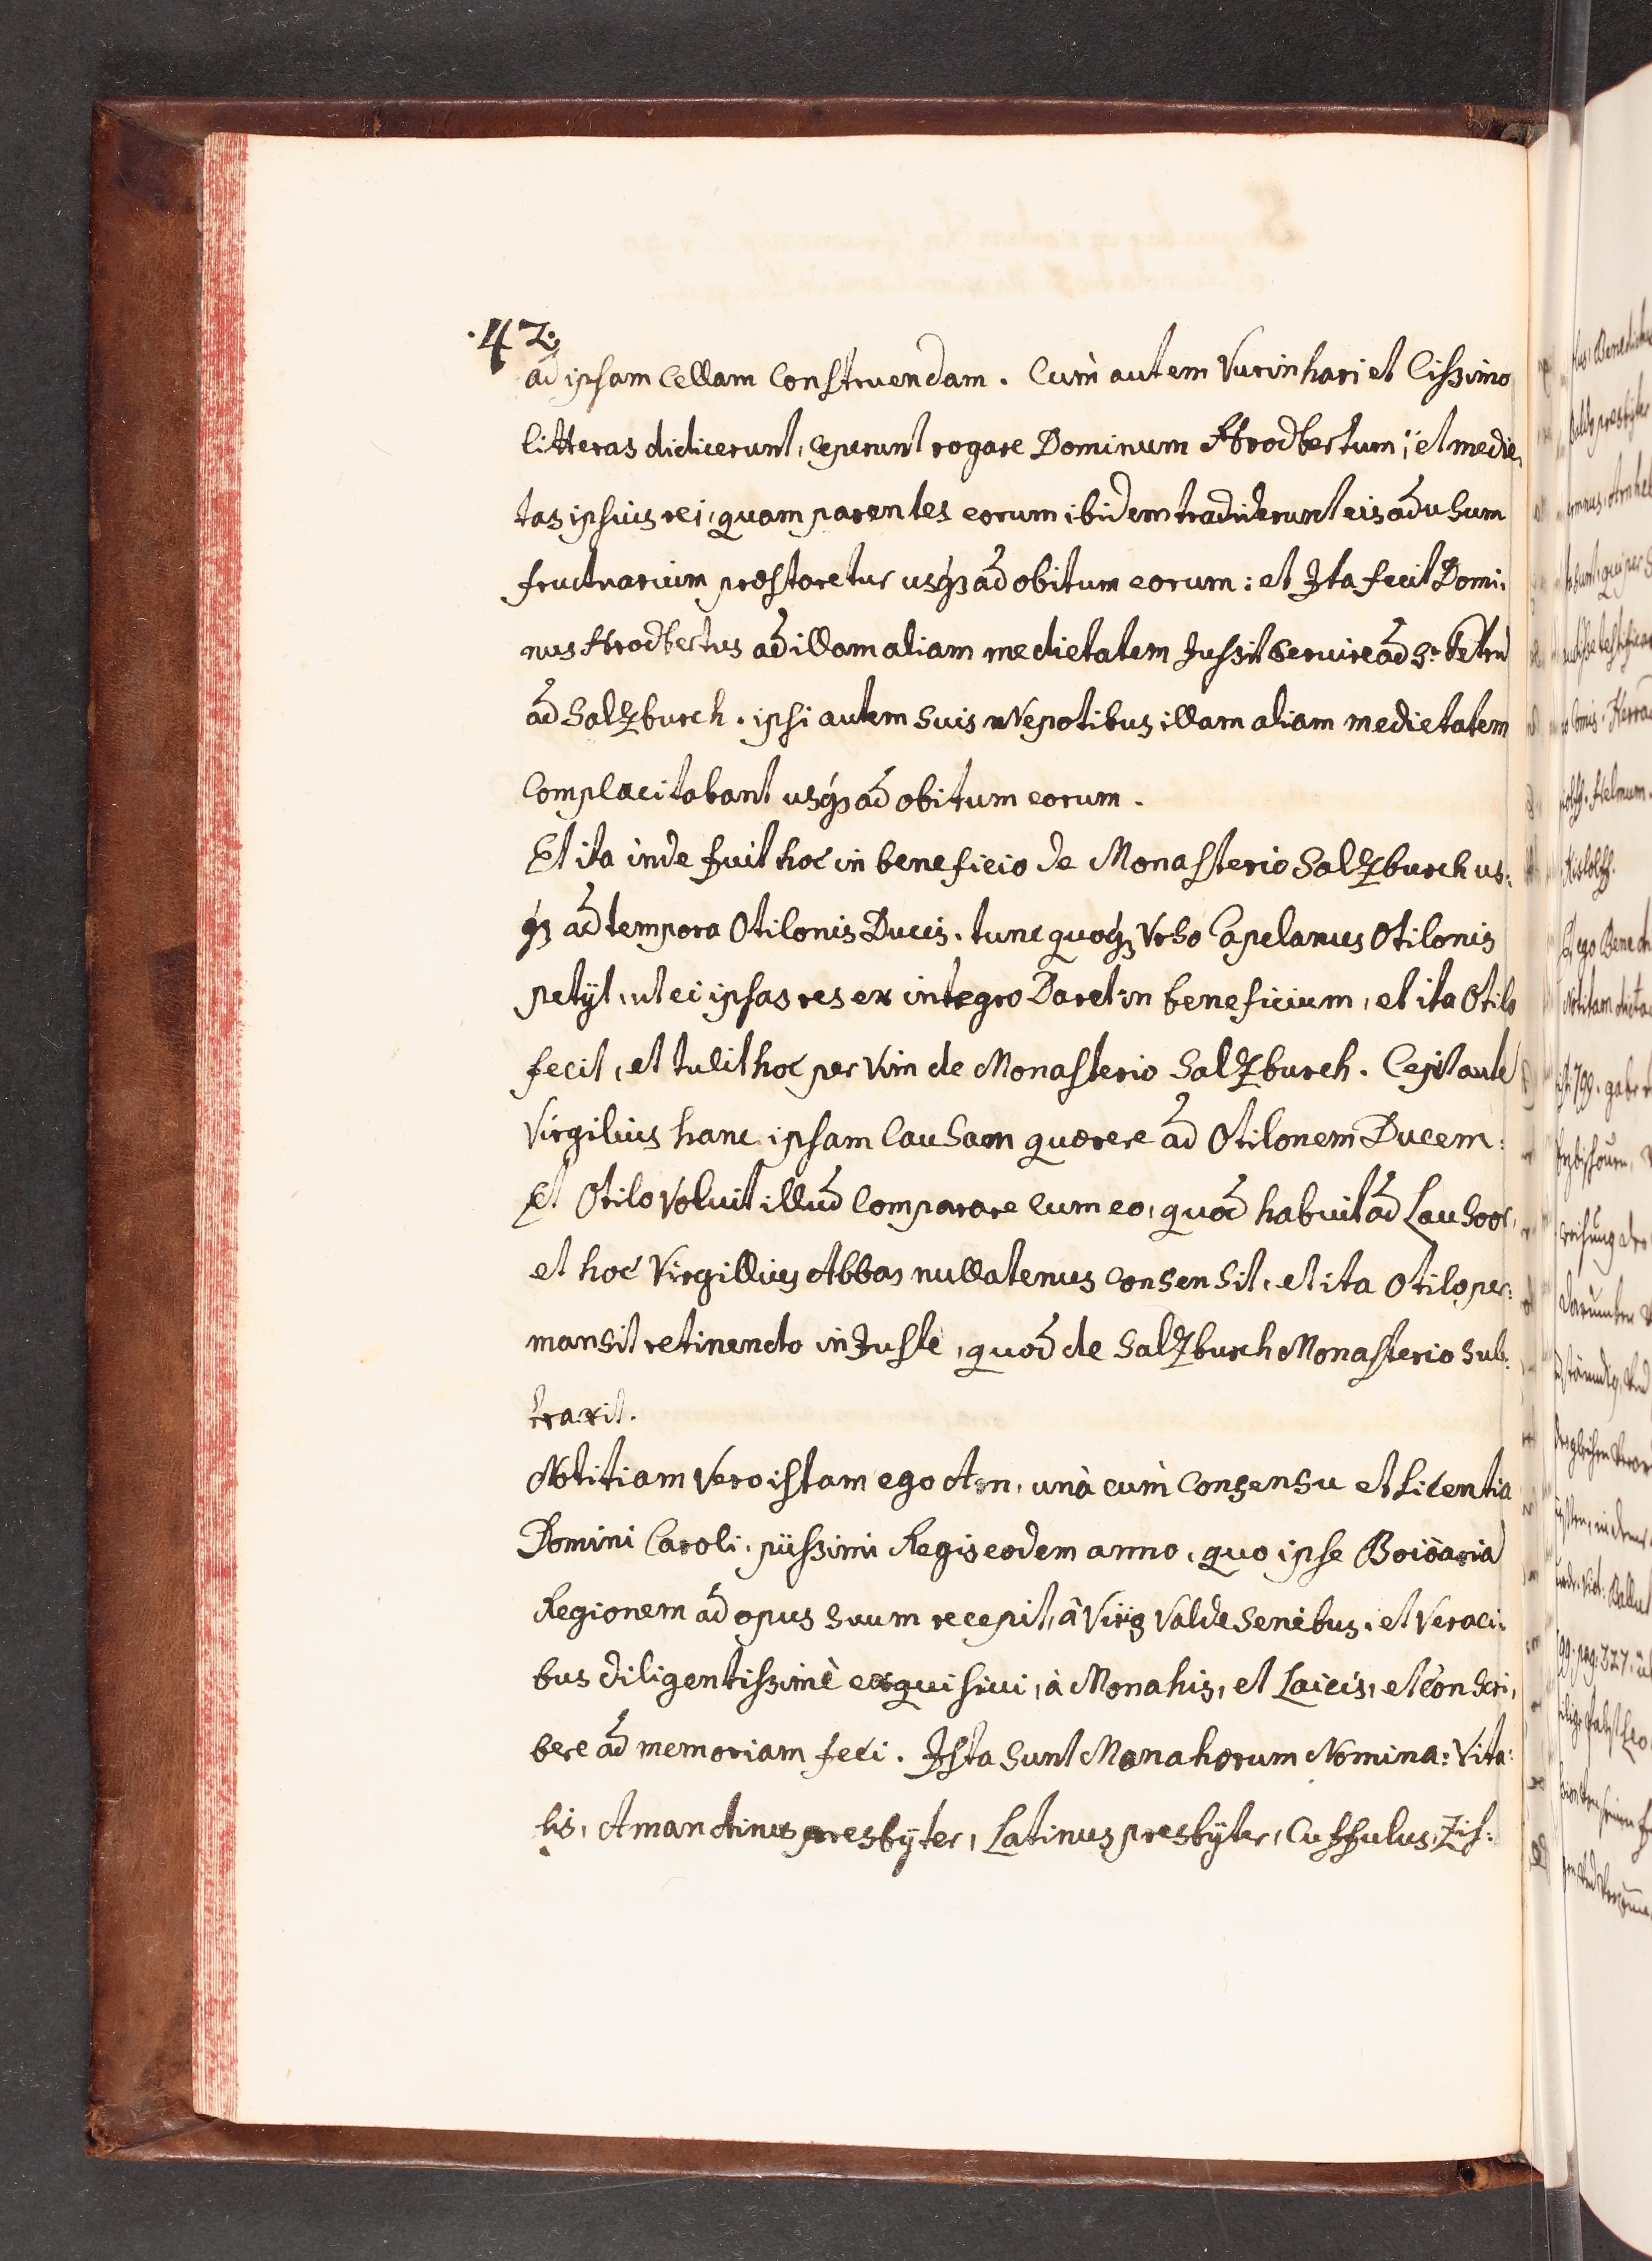 .42.
ad ipsam Cellam Construendam. Cum̀ autem Vurinhari et Cissimo
litteras didicerunt, ceperunt rogare Dominum Hrodbertum, et medie,
tas ipsius rei, quam parentes eorum ibidem tradiderunt eis ad usum
fructuarium præstaretur usq3 ad obitum eorum: et Ita fecit Domi:
nus Hrodbertus ad illam aliam medietatem Jussit servire ad S: Petrū
ad Salzburch. ipsi autem suis Nepotibus illam aliam medietatem
Complacitabant usq3 ad obitum eorum.
Et ita inde fuit hoc in beneficio de Monasterio Salzburch us:
q3 ad tempora Otilonis Ducis. tunc quoq3 Vrso Capelanus Otilonis
petijt, ut ei ipsas res ex integro Daret in beneficium, et ita Otilo
fecit, et tulit hoc per vim de Monasterio Salzburch. Cepit autē
Virgilius hanc ipsam Causam quærere ad Otilonem Ducem:
Et Otilo Voluit illud Comparare cum eo, quod habuit ad Lausoor,
et hoc Virgillius Abbas nullatenus Consensit, et ita Otilo per:
mansit retinendo inJuste, quod de Salzburch Monasterio sub:
traxit.
Notitiam Vero istam ego Arn, unà cum̀ Consensu et licentia
Domini Caroli, piissimi Regis eodem anno, quo ipse Boioariā
Regionem ad opus suum recepit, â Viris Valde senibus, et Veraci:
bus diligentissimè exquisivi, à Monahis, et Laicis, et Conscri,
bere ad memoriam feci. Ista sunt Monahorum Nomina: Vita:
lis, Amandinus presbÿter, Latinus presbÿter, Cussulus, Jis: